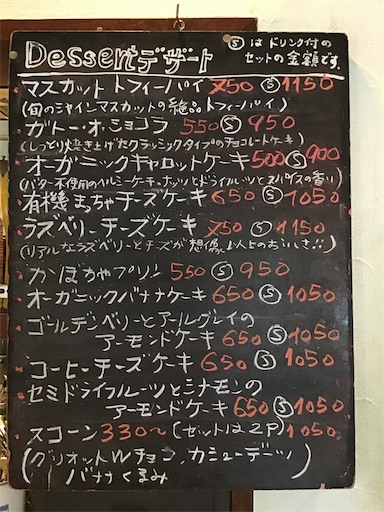 Dessertデザート
Ⓢはドリンク付の
セットの金額です。
マスカットトフィーパイ 750 Ⓢ 1150
(旬のシャインマスカットの絶品トフィーパイ)
ガトー・オ・ショコラ 550 Ⓢ 950
(しっとり焼き上げたクラッシックタイプのチョコレートケーキ)
オーガニックキャロットケーキ 500 Ⓢ 900
(バター不使用のヘルシーケーキ。ナッツとドライフルーツとスパイスの香り)
有機まっちゃチーズケーキ 650 Ⓢ 1050
ラズベリーチーズケーキ 750 Ⓢ 1150
(リアルなラズベリーとチーズが想像以上のおいしさ!!)
かぼちゃプリン 550 Ⓢ 950
オーガニックバナナケーキ 650 Ⓢ 1050
ゴールデンベリーとアールグレイの
アーモンドケーキ 650 Ⓢ 1050
コーヒーチーズケーキ 650 Ⓢ 1050
セミドライフルーツとシナモンの
アーモンドケーキ 650 Ⓢ 1050
スコーン 330〜 (セットは2P) 1050
(グリオットWチョコ、カシューデーツ
バナナくるみ)